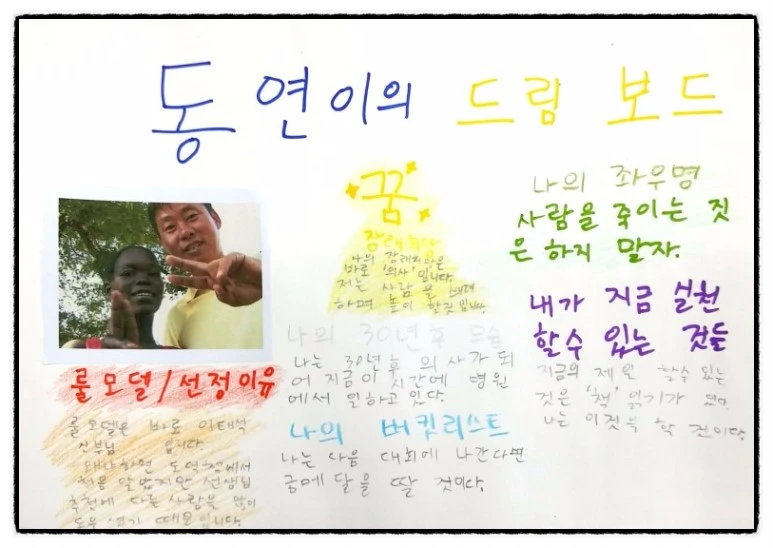 동연이의 드림 보드
꿈
장래희망
나의 장래희망은
바로 '의사' 입니다.
저는 사람을
하며 놀이 할것입니다.
나의 좌우명
사람을 죽이는 짓
은 하지 말자.
내가 지금 실천
할수 있는 것들
지금의 제일 할수 있는
것은 '책' 읽기가 있다.
나는 이것을 할 것이다.
나의 30년후 모습
나는 30년후 의사가 되
어 지금이 시간에 병원
에서 일하고 있다.
나의 버킷리스트
나는 다음 대회에 나간다면
금메달을 딸 것이다.
룰모델/선정이유
룰모델은 바로 이태석
신부님 입니다.
왜냐하면 도덕책에서
처음 알았지만 선생님
추천에 다른 사람을 많이
도우셨기 때문입니다.